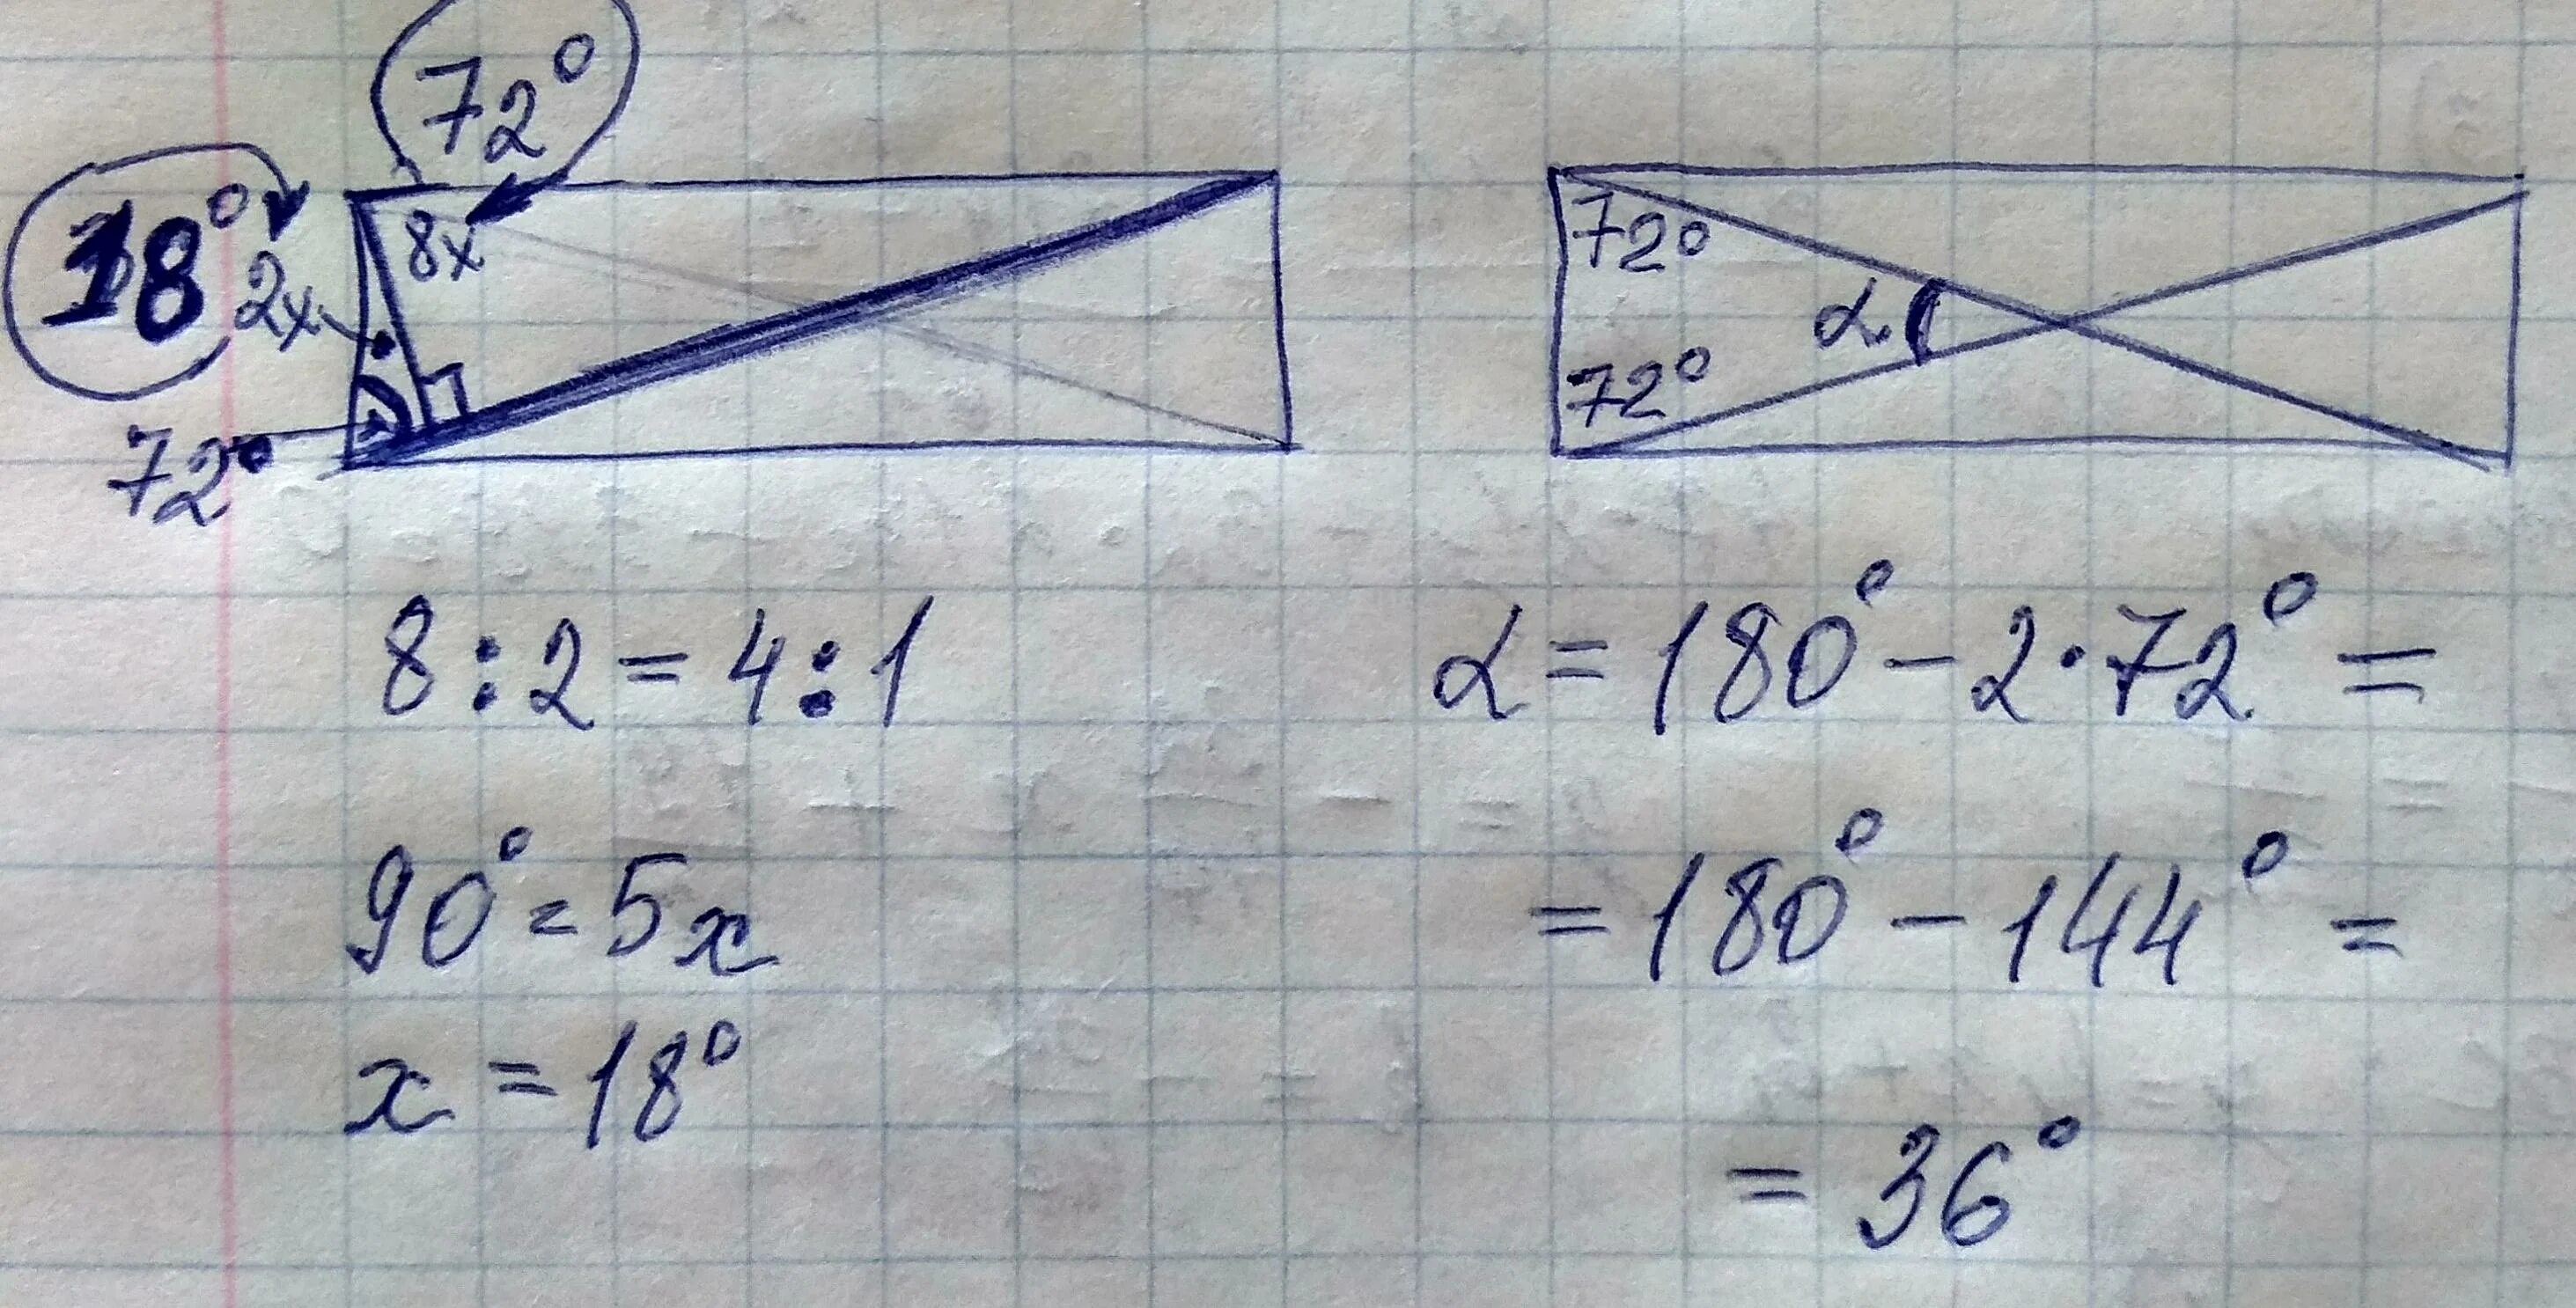 72°
18°
2x
8x
72°
72°
72°
α
8:2=4:1
90°=5x
x=18°
α=180°-2·72°=
=180°-144°=
=36°